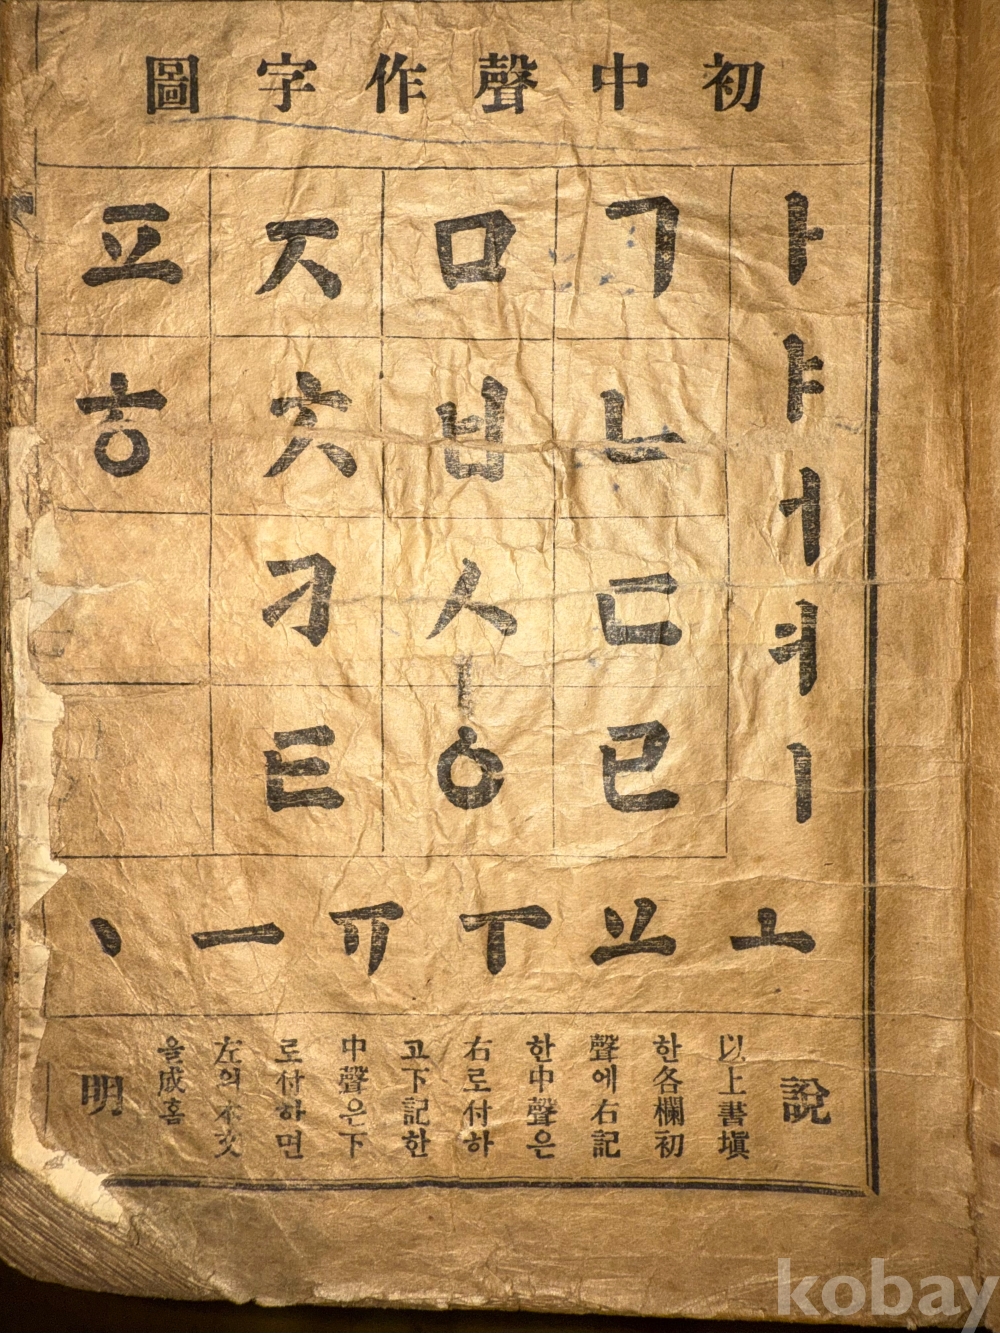 初中聲作字圖
ㅏㅑㅓㅕㅣ
ㄱㄴㄷㄹ
ㅁㅂㅅㅇ
ㅈㅊㅋㅌ
ㅍㅎ
ㅗㅛㅜㅠㅡㆍ
說明
以上書塡
한各欄初
聲에右記
한中聲은
右로付하
고下記한
中聲은下
로付하면
左의本文
을成홈
kobay